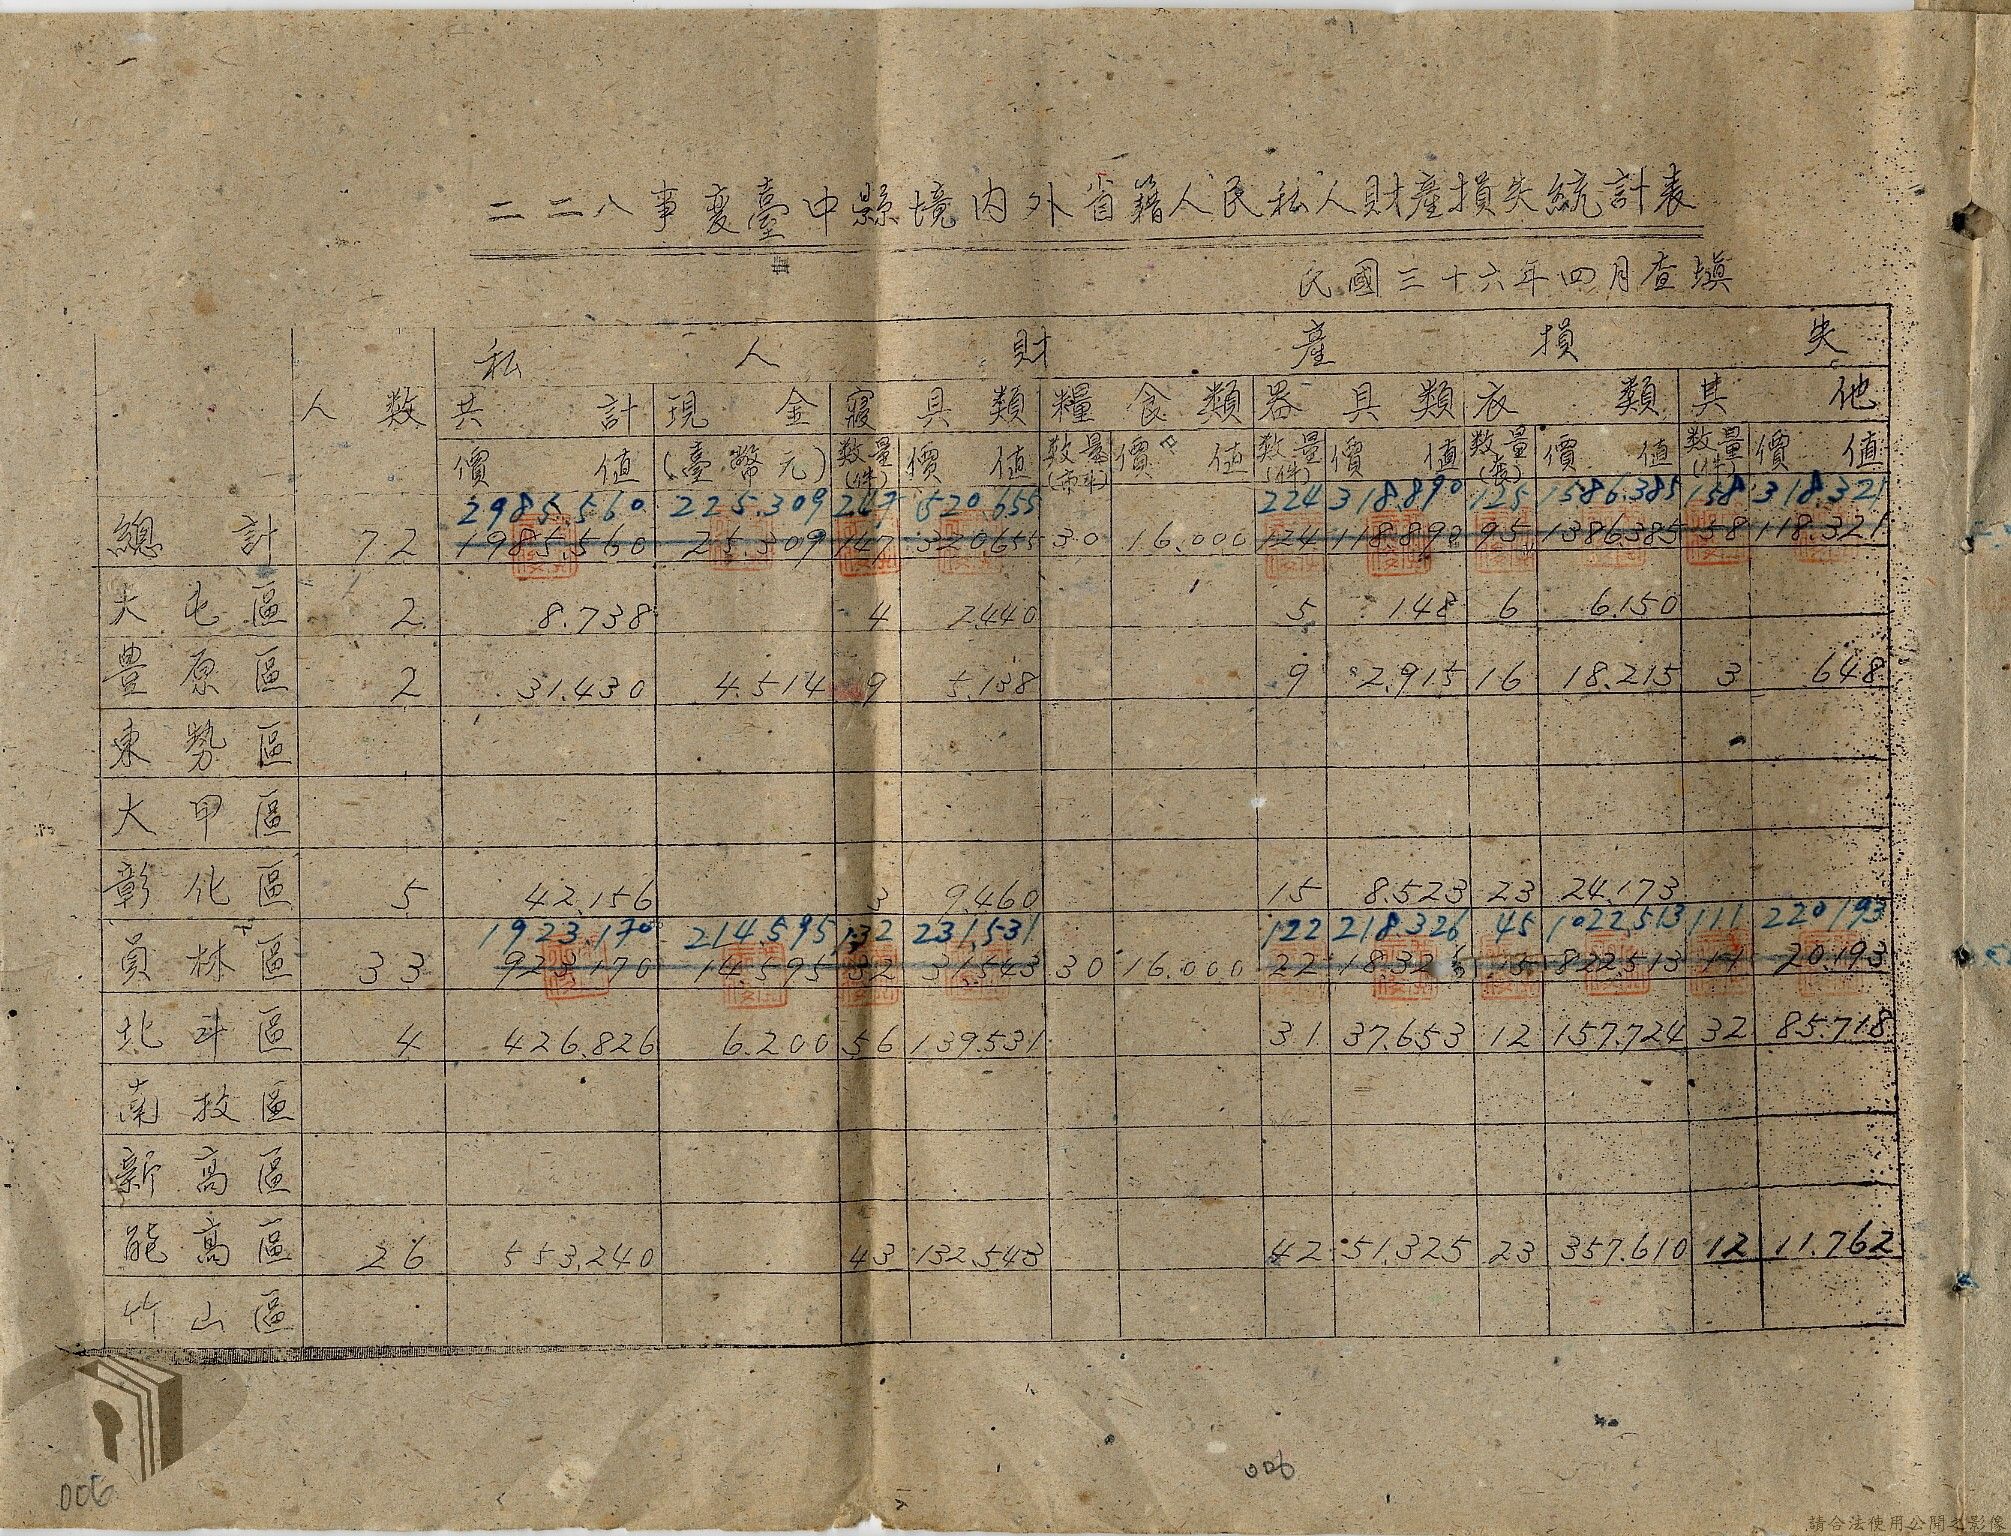 二二八事変臺中縣境内外省籍人民私人財產損失統計表
民國三十六年四月查塡
私人財產損失
人数 共計 現金 寢具類 糧食類 器具類 衣類 其他
價值 (臺幣元) 数量(件) 價值 数量(市斗) 價值 数量(件) 價值 数量(套) 價值 数量(件) 價值
2985.560 225.309 247 520.655 224 318.890 125 1586.385 158 318.321
總計 72 1985.560 25.309 147 320.655 30 16.000 124 118.890 95 1386.385 58 118.321
大屯區 2 8.738 4 2.440 5 148 6 6.150
豊原區 2 31.430 4.514 9 5.138 9 2.915 16 18.215 3 648
東勢區
大甲區
彰化區 5 42.156 3 9.460 15 8.523 23 24.173
1923.170 214.595 132 231.531 122 218.326 45 1022.513 111 220193
員林區 33 923.170 14.595 32 31.543 30 16.000 22 18.326 15 822.513 11 20.193
北斗區 4 426.826 6.200 56 139.531 31 37.653 12 157.724 32 85.718
南投區
新高區
能高區 26 553.240 43 132.543 42 51.325 23 357.610 12 11.762
竹山區
006
006
請合法使用公開之影像